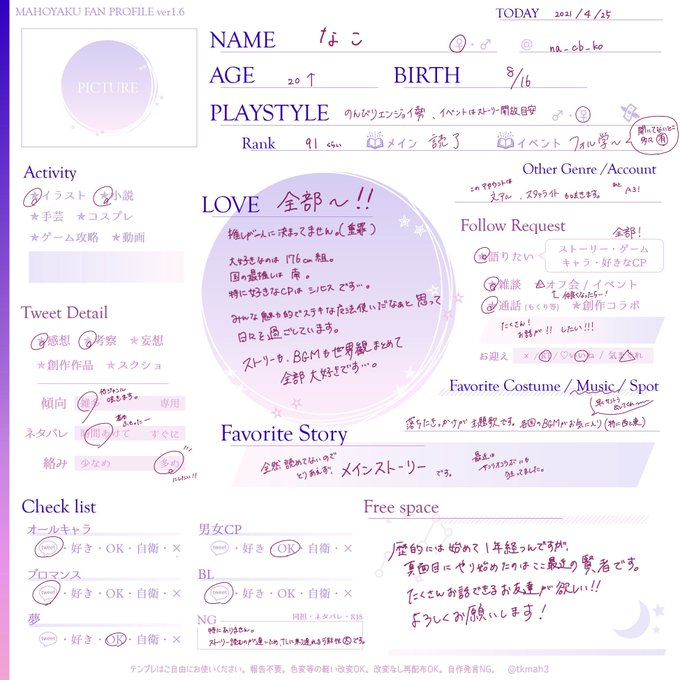 MAHOYAKU FAN PROFILE ver1.6
TODAY 2021/4/25
PICTURE
NAME なこ ♀・♂ @ na_cb_ko
AGE 20↑ BIRTH 8/16
PLAYSTYLE のんびりエンジョイ勢、イベントはストーリー開放目安 ♂・♀
Rank 91くらい メイン 読了 イベント フォル学〜
開いてないとこ
Activity
★イラスト ★小説
★手芸 ★コスプレ
★ゲーム攻略 ★動画
LOVE 全部〜!!
推しが一人に決まってません。(重罪)
大好きなのは 176cm組。
国の最推しは 南。
特に好きなCPは シノヒス です…。
みんな魅力的でステキな魔法使いだなぁと思って
日々を過ごしています。
ストーリーも、BGMも世界観まとめて
全部大好きです…。
Other Genre /Account
このアカウントは
文アル、スタァライトも呟きます。 A3!
Follow Request
全部!
★語りたい ストーリー・ゲーム
キャラ・好きなCP
★雑談 ★オフ会 / イベント
仲良くなったらー!
★通話(もくり等) ★創作コラボ
たくさん!
お話が!! したい!!!
お迎え × / RT / ♡いいね / 気まぐれ
Tweet Detail
★感想 ★考察 ★妄想
★創作作品 ★スクショ
他ジャンル
傾向 雑多 専用
ネタバレ 時間あけて すぐに
絡み 少なめ 多め
にしたい!!
Favorite Costume / Music / Spot
落ちた氷のかけらが主題歌です。各国のBGMがお気に入り
Favorite Story
全然読めてないので
とりあえず、メインストーリー です。
最近は
狂ってました。
Check list
オールキャラ
tweet・好き・OK・自衛・×
ブロマンス
tweet・好き・OK・自衛・×
夢
tweet・好き・OK・自衛・×
男女CP
tweet・好き・OK・自衛・×
BL
tweet・好き・OK・自衛・×
NG 同担・ネタバレ・R18
特にありません。
ストーリー読むのが遅いため、TLに来る遅れる可能性大です。
Free space
歴的には始めて1年経つんですが、
真面目にやり始めたのはここ最近の賢者です。
たくさんお話できるお友達が欲しい!!
よろしくお願いします!
テンプレはご自由にお使いください。報告不要。色変等の軽い改変OK。改変なし再配布OK。自作発言NG。 @tkmah3